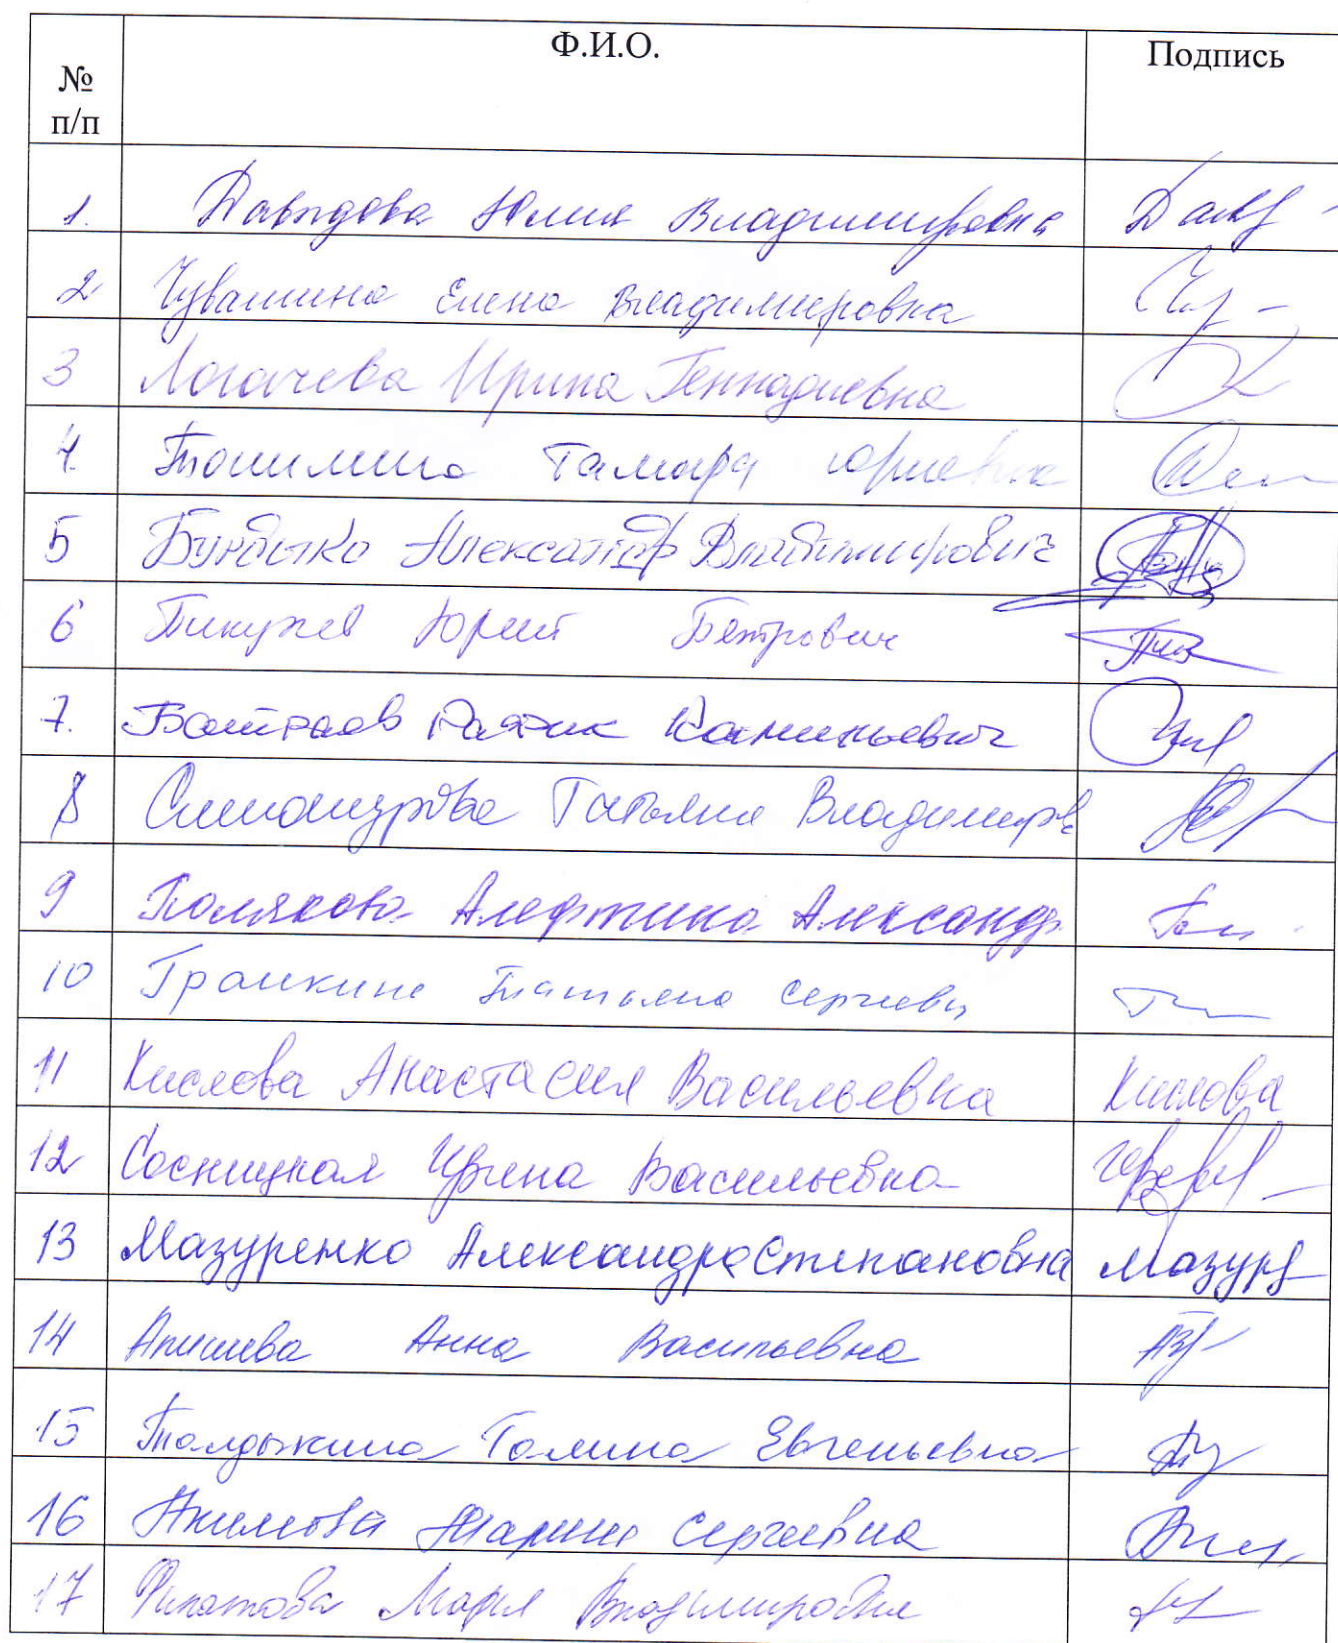 № п/п Ф.И.О. Подпись
1. Давыдова Юлия Владимировна Давд
2 Чувашина Елена Владимировна
3 Логачева Ирина Геннадиевна
4. Тонимина Тамара Юриевна
5 Бундыко Александр Владимирович
6 Пикужев Юрий Петрович
7. Рафик
8 Татьяна Владимиров
9 Полякова Алефтина Александр.
10 Гранкина Татьяна Сергеевн
11 Кислова Анастасия Васильевна Кислова
12 Сосницкая Ирина Васильевна
13 Мазуренко Александра Степановна Мазур
14 Анна Васильевна
15 Толдыкина Галина Евгеньевна
16 Акимова Марина Сергеевна
17 Филатова Мария Владимировна